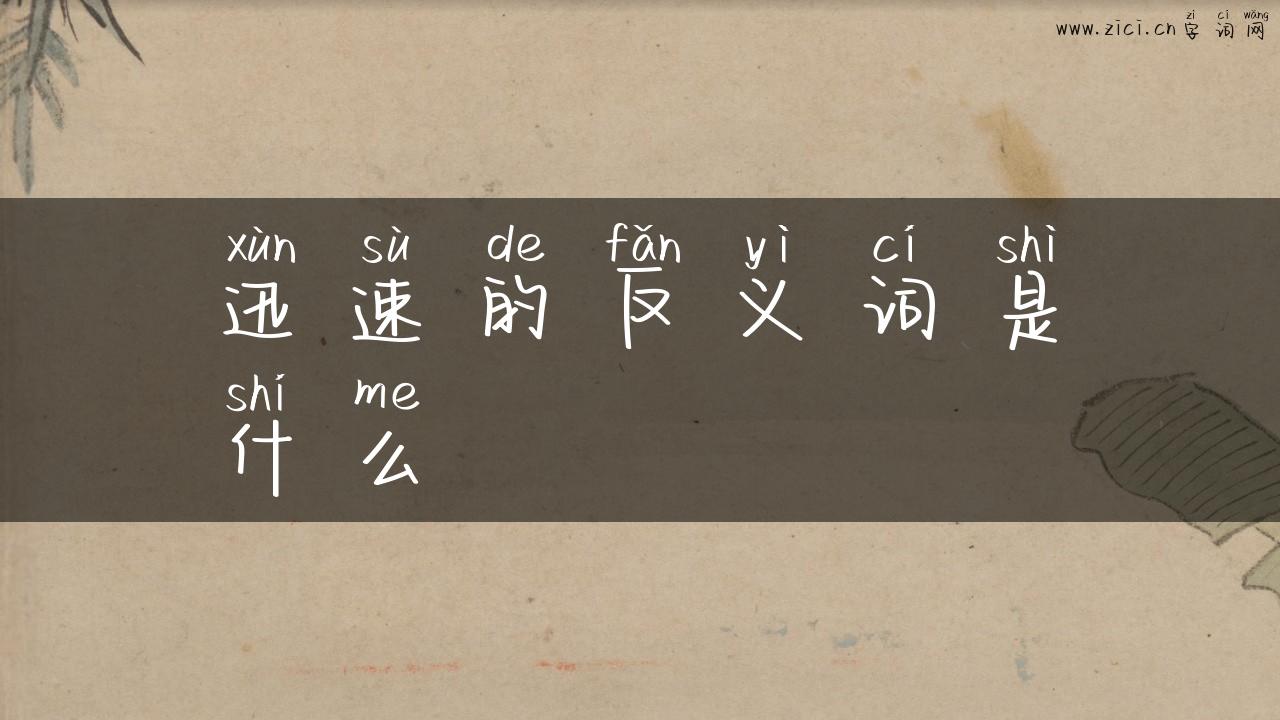 zì cí wǎng
www.zici.cn 字词网
xùn sù de fǎn yì cí shì
迅速的反义词是
shí me
什么